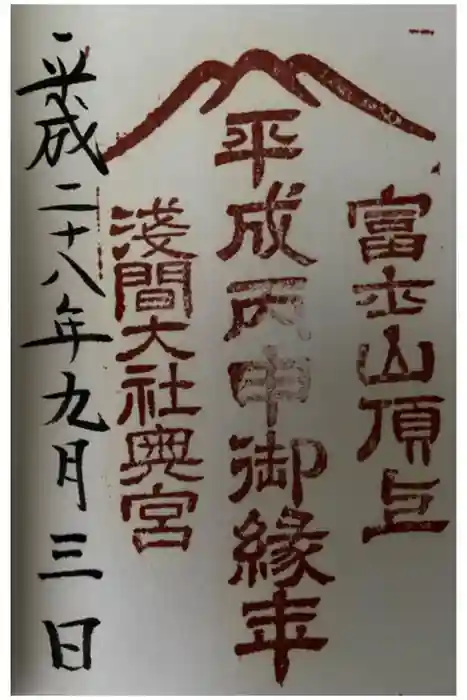 富士山頂上
平成丙申御縁年
淺間大社奥宮
平成二十八年九月三日